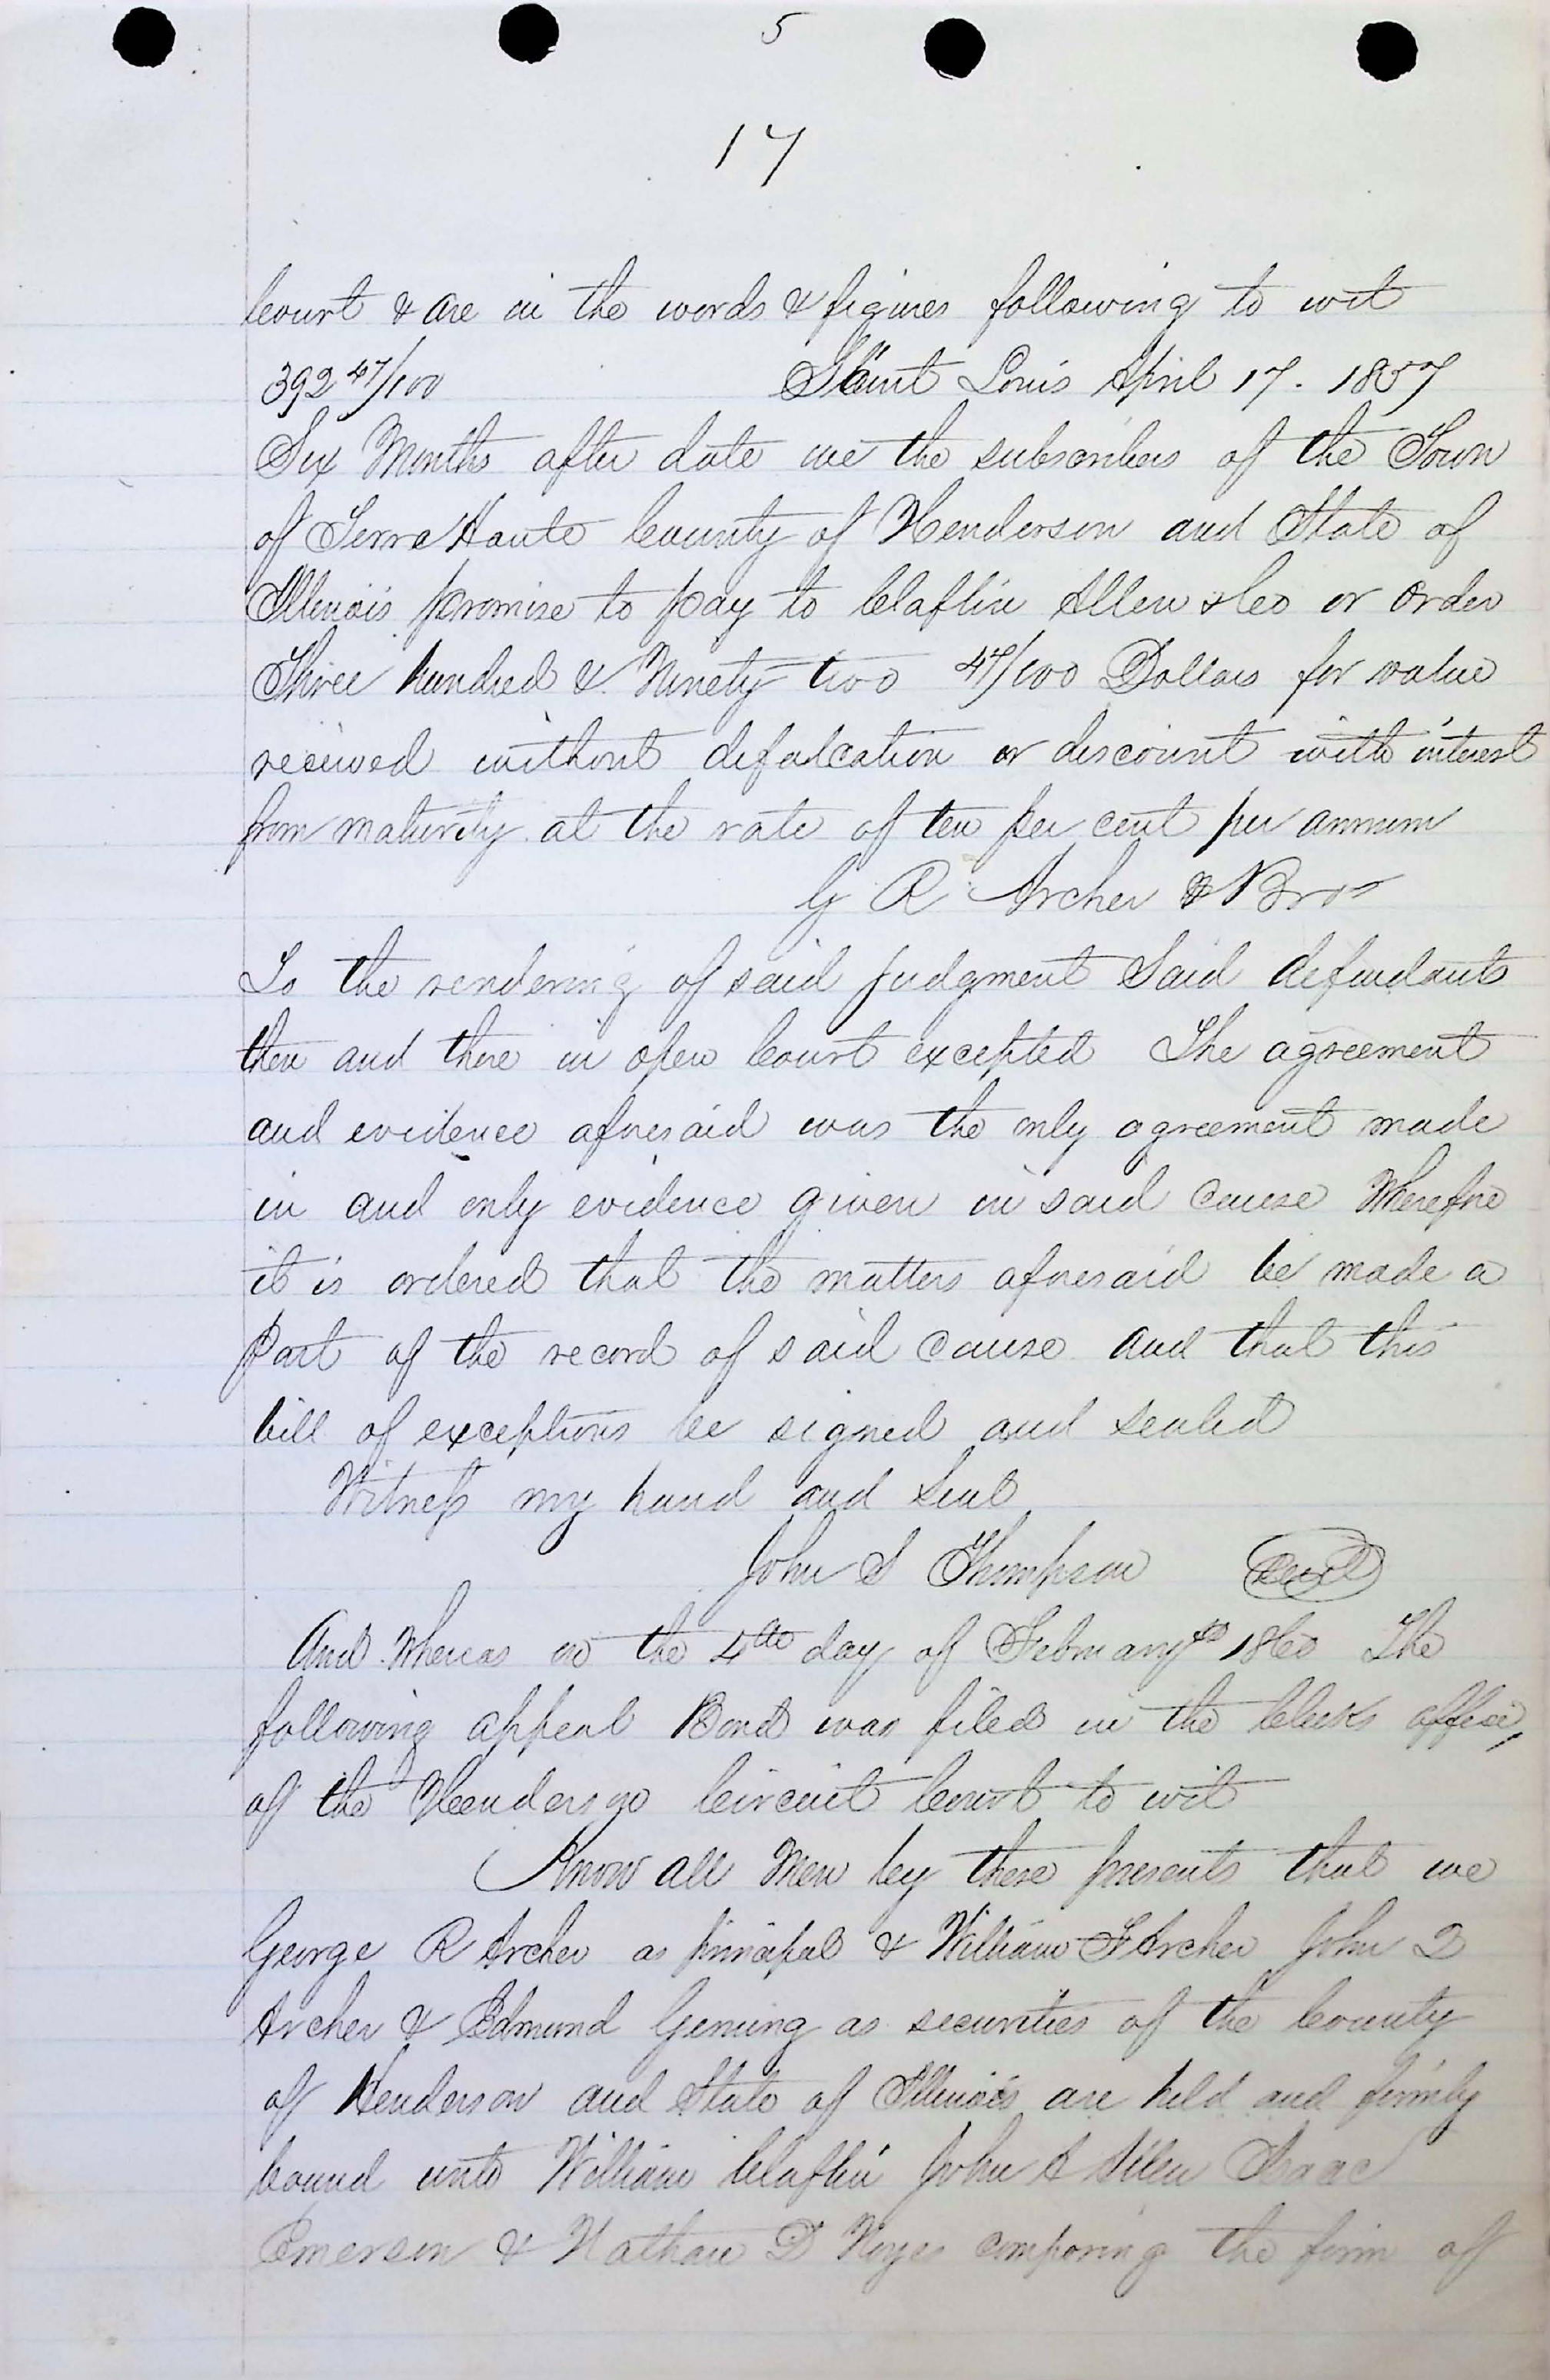 5
17
Court & are in the words & figures following to wit
392 47/100 Saint Louis April 17. 1857
Six Months after date we the subscribers of the Town
of Terre Haute County of Henderson and State of
Illinois promise to pay to Claflin Allen & Co or order
Three hundred & Ninety two 47/100 Dollars for value
received without defalcation or discount with interest
from maturity at the rate of ten per cent per annum
G R Archer & Bros
To the rendering of said judgment Said defendants
then and there in open Court excepted The agreement
and evidence aforesaid was the only agreement made
in and only evidence given in said cause Wherefore
it is ordered that the matters aforesaid be made a
part of the record of said cause and that this
bill of exceptions be signed and sealed
Witness my hand and seal
John S Thompson Seal
And Whereas on the 4th day of February 1860 The
following appeal Bond was filed in the Clerks office,
of the Henderson Circuit Court to wit
Know all Men by these presents that we
George R Archer as principal & William F Archer John D
Archer & Edmund Gening as securities of the County
of Henderson and State of Illinois are held and firmly
bound unto William Claflin John A Allen Isaac
Emerson & Nathan D Noyes composing the firm of